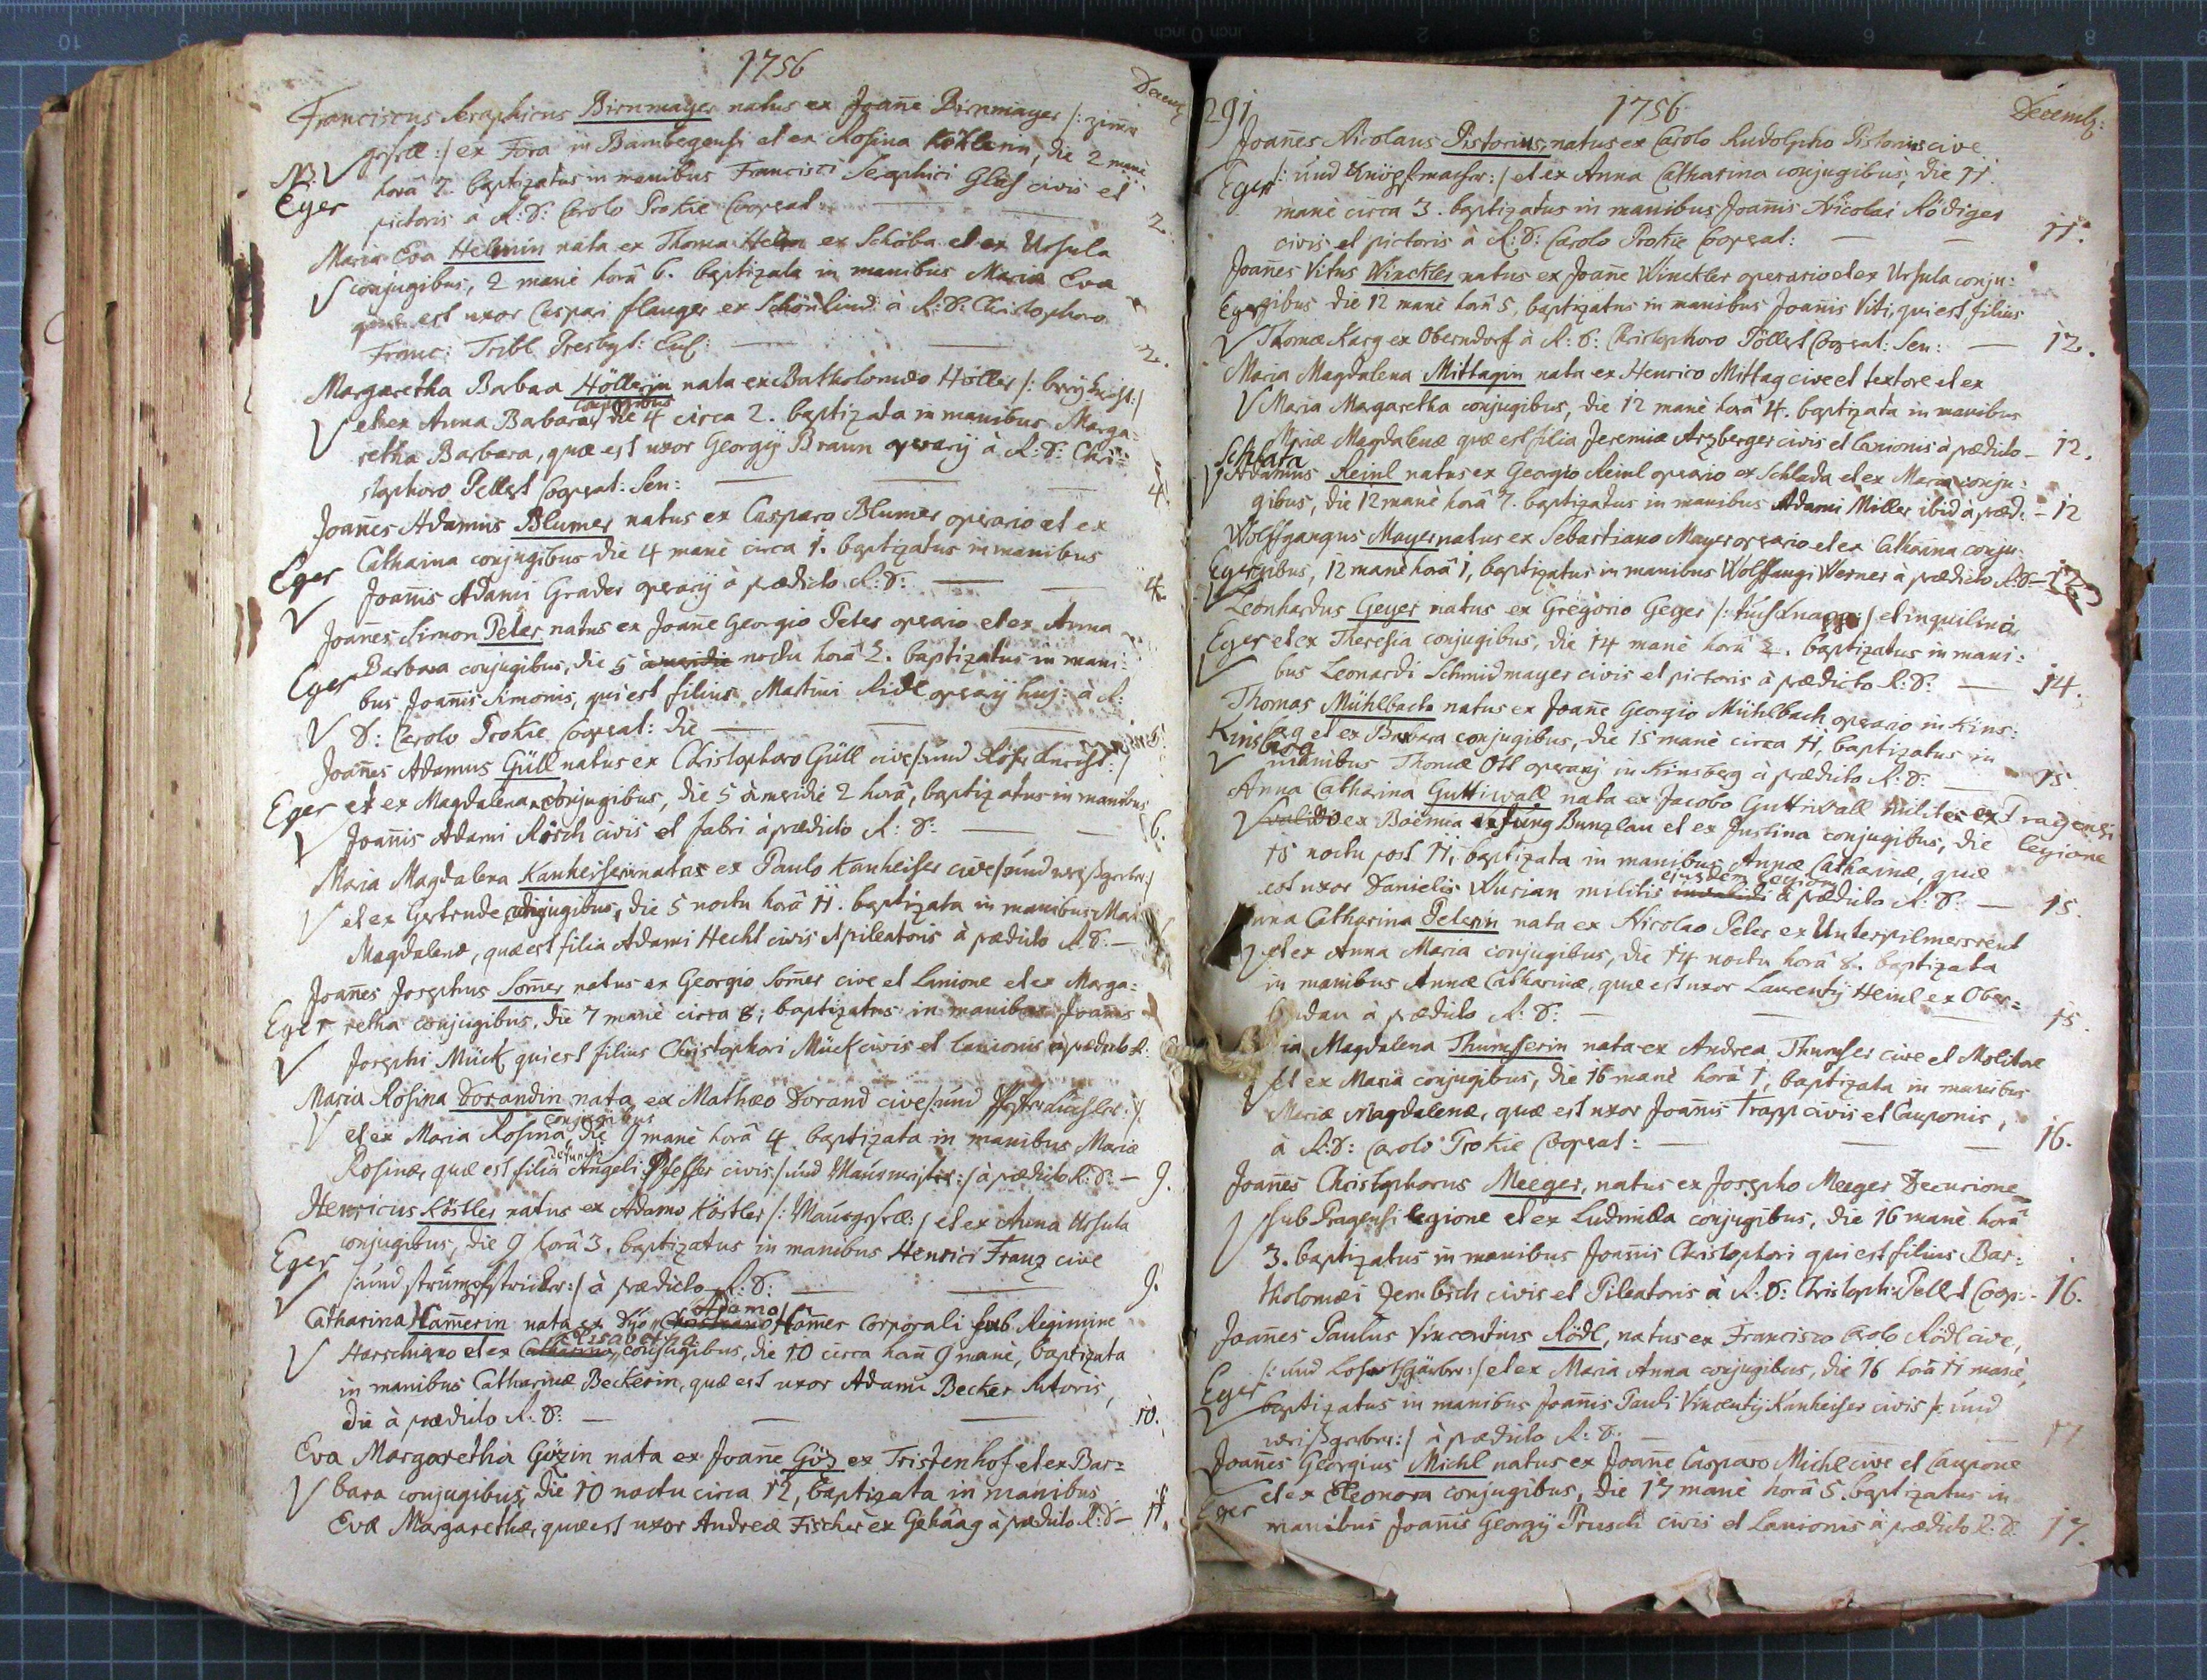 1756
Decemb
Franciscus Seraphicus Birnmayer natus ex Joañe Birnmayer /: zim̃er
gesell :/ ex Fora in Bambergensi et ex Rosina Köhlerin, die 2 manè
NB. horâ 7. baptizatus in manibus Francisci Seraphici Glas civis et
Eger pictoris a R: D: Carolo Prokie Cooperat. 2.
Maria Eva Helmin nata ex Thoma Helm ex Schöba et ex Ursula
conjugibus, 2 manè horâ 6. baptizata in manibus Mariæ Eva
quæ est uxor Caspari flauger ex Schönlind à R: D: Christophoro
Franc: Tribl Presbyt: Cul: 2.
Margaretha Barbara Höllerin nata ex Batholomæo Höller /: :/
conjugibus
et ex Anna Barbara, die 4 circa 2. baptizata in manibus Marga:
retha Barbara, quæ est uxor Georgÿ Braun operarÿ à R: D: Chri:
stophoro Pellet Cooperat: Sen: 4.
Joañes Adamus Blumer natus ex Casparo Blumer operario et ex
Catharina conjugibus die 4 manè circa 1. baptizatus in manibus
Eger Joañis Adami Grader operarÿ à prædicto R: D: 4.
Joañes Simon Peter natus ex Joañe Georgio Peter operario et ex Anna
Barbara conjugibus, die 5 à meridie noctu horâ 2. baptizatus in mani:
Eger bus Joañis Simonis, qui est filius Martini Ridl operarÿ huj: à R:
D: Carolo Prokie Cooperat: die
Joañes Adamus Güll natus ex Christophoro Güll cive /: und :/
Eger et ex Magdalena conjugibus, die 5 à meridie 2 horâ, baptizatus in manibus
Joañis Adami Rösch civis et fabri à prædicto R: D: 6.
Maria Magdalena Kanheiserin nata ex Paulo Kanheiser cive /: und weißgerber :/
et ex Gertrude conjugibus, die 5 noctu horâ 11. baptizata in manibus Mari
Magdalenæ, quæ est filia Adami Hecht civis et pileatoris à prædicto R. D.
Joañes Josephus Som̃er natus ex Georgio Som̃er cive et Lanione et ex Marga:
Eger retha conjugibus, die 7 manè circa 8; baptizatus in manibus Joañis
Josephi Mück qui est filius Christophori Mück civis et lanionis à prædicto R.
Maria Rosina Dorandin nata ex Mathæo Dorand cive /: und :/
conjugibus
et ex Maria Rosina, die 9 manè horâ 4 baptizata in manibus Mariæ
defuncti
Rosinæ, quæ est filia Angeli Pfeffer civis /: und Maurmeister :/ à prædicto R: D: 9.
Henricus Köstler natus ex Adamo Köstler /: Maurgesell :/ et ex Anna Ursula
Eger conjugibus, die 9 horâ 3. baptizatus in manibus Henrici Franz cive
/: und strumpfstricker :/ à prædicto R: D: 9.
Adamo
Catharina Ham̃erin nata ex Ham̃er Corporali sub Regimine
Elisabetha
Harschiano et ex Catharina conjugibus, die 10 circa horâ 9 manè, baptizata
in manibus Catharinæ Beckerin, quæ est uxor Adami Becker Sutoris,
die à prædicto R. D: 10.
Eva Margaretha Gözin nata ex Joañe Göz ex Tristenhof et ex Bar:
bara conjugibus, die 10 noctu circa 12, baptizata in manibus
Evæ Margarethæ, quæ est uxor Andreæ Fischer ex Gehaag à prædicto R: D 11.
291
1756
Decemb:
Joañes Nicolaus Pistorius, natus ex Carolo Rudolpho Pistorius cive
Eger /: und Knöpfmacher :/ et ex Anna Catharina conjugibus, die 11.
manè circa 3. baptizatus in manibus Joañis Nicolai Rödiger
civis et pictoris à R: D: Carolo Prokie Cooperat: 11.
Joañes Vitus Winckler natus ex Joañe Winckler operario et ex Ursula conju:
Eger gibus die 12 manè horâ 5, baptizatus in manibus Joañis Viti, qui est filius
Thomæ Karg ex Oberndorf à R: D: Christophoro Pöllet Cooperat: Sen: 12.
Maria Magdalena Mittagin nata ex Henrico Mittag cive et textore et ex
Maria Margaretha conjugibus, die 12 manè horâ 4. baptizata in manibus
Mariæ Magdalenæ quæ est filia Jeremiæ Arzberger civis et Lanionis à prædicto 12.
Schlata
Adamus Reinl natus ex Georgio Reinl operario ex Schlada et ex Maria conju:
gibus, die 12 manè horâ 7. baptizatus in manibus Adami Miller ibid à præd: 12
Wolffgangus Mayer natus ex Sebastiano Mayer operario et ex Catharina conju:
Eger gibus, 12 manè horâ 1, baptizatus in manibus Wolffangi Werner à prædicto R: D: 12
Leonhardus Geyer natus ex Gregorio Geger /: tuchknapp :/ et inquilino
Eger et ex Theresia conjugibus, die 14 manè horâ 2. baptizatus in mani:
bus Leonardi Schmidmayer civis et pictoris à prædicto R: D: 14.
Thomas Mühlbach natus ex Joañe Georgio Mühlbach operario in Kins:
Kinsberg berg et ex Barbara conjugibus, die 15 manè circa 11, baptizatus in
manibus Thomæ Ott operarÿ in Kinsberg à prædicto R: D: 15
Anna Catharina Guttiwall nata ex Jacobo Guttiwall milites ex Pragensi
legione
valido ex Boëmia ex Jung Bunzlau et ex Justina conjugibus, die
15 noctu post 11, baptizata in manibus Annæ Catharinæ, quæ
ejusdem Legion
est uxor Danielis Wurian militis invalidi à prædicto R: D: 15.
Anna Catharina Peterin nata ex Nicolao Peter ex Unterpilmersreut
et ex Anna Maria conjugibus, die 14 noctu horâ 8. baptizata
in manibus Annæ Catharinæ, quæ est uxor Laurentÿ Heinl ex Ober:
lindau à prædicto R: D: 15.
ria Magdalena Thumserin nata ex Andrea Thumser cive et Molitore
et ex Maria conjugibus, die 16 manè horâ 1, baptizata in manibus
Mariæ Magdalenæ, quæ est uxor Joañis Trapp civis et Cauponis,
à R: D: Carolo Prokie Cooperat: 16.
Joañes Christophorus Meeger, natus ex Josepho Meeger Decurione
sub Pragensi legione et ex Ludmilla conjugibus, die 16 manè horâ
3. baptizatus in manibus Joañis Christophori qui est filius Bar:
tholomæi Zembsch civis et Pileatoris à R: D: Christoph: Pellet Coop: 16.
Joañes Paulus Vincentius Rödl, natus ex Francisco Carolo Rödl cive,
Eger /: und :/ et ex Maria Anna conjugibus, die 16 horâ 11 manè,
baptizatus in manibus Joañis Pauli Vincentÿ Kanheiser civis /: und
weißgerber :/ à prædicto R: D: 17
Joañes Georgius Michl natus ex Joañe Casparo Michl cive et Caupone
Eger et ex Eleonora conjugibus, die 17 manè horâ 5. baptizatus in
manibus Joañis Georgÿ Prusch civis et Lanionis à prædicto R: D: 17.